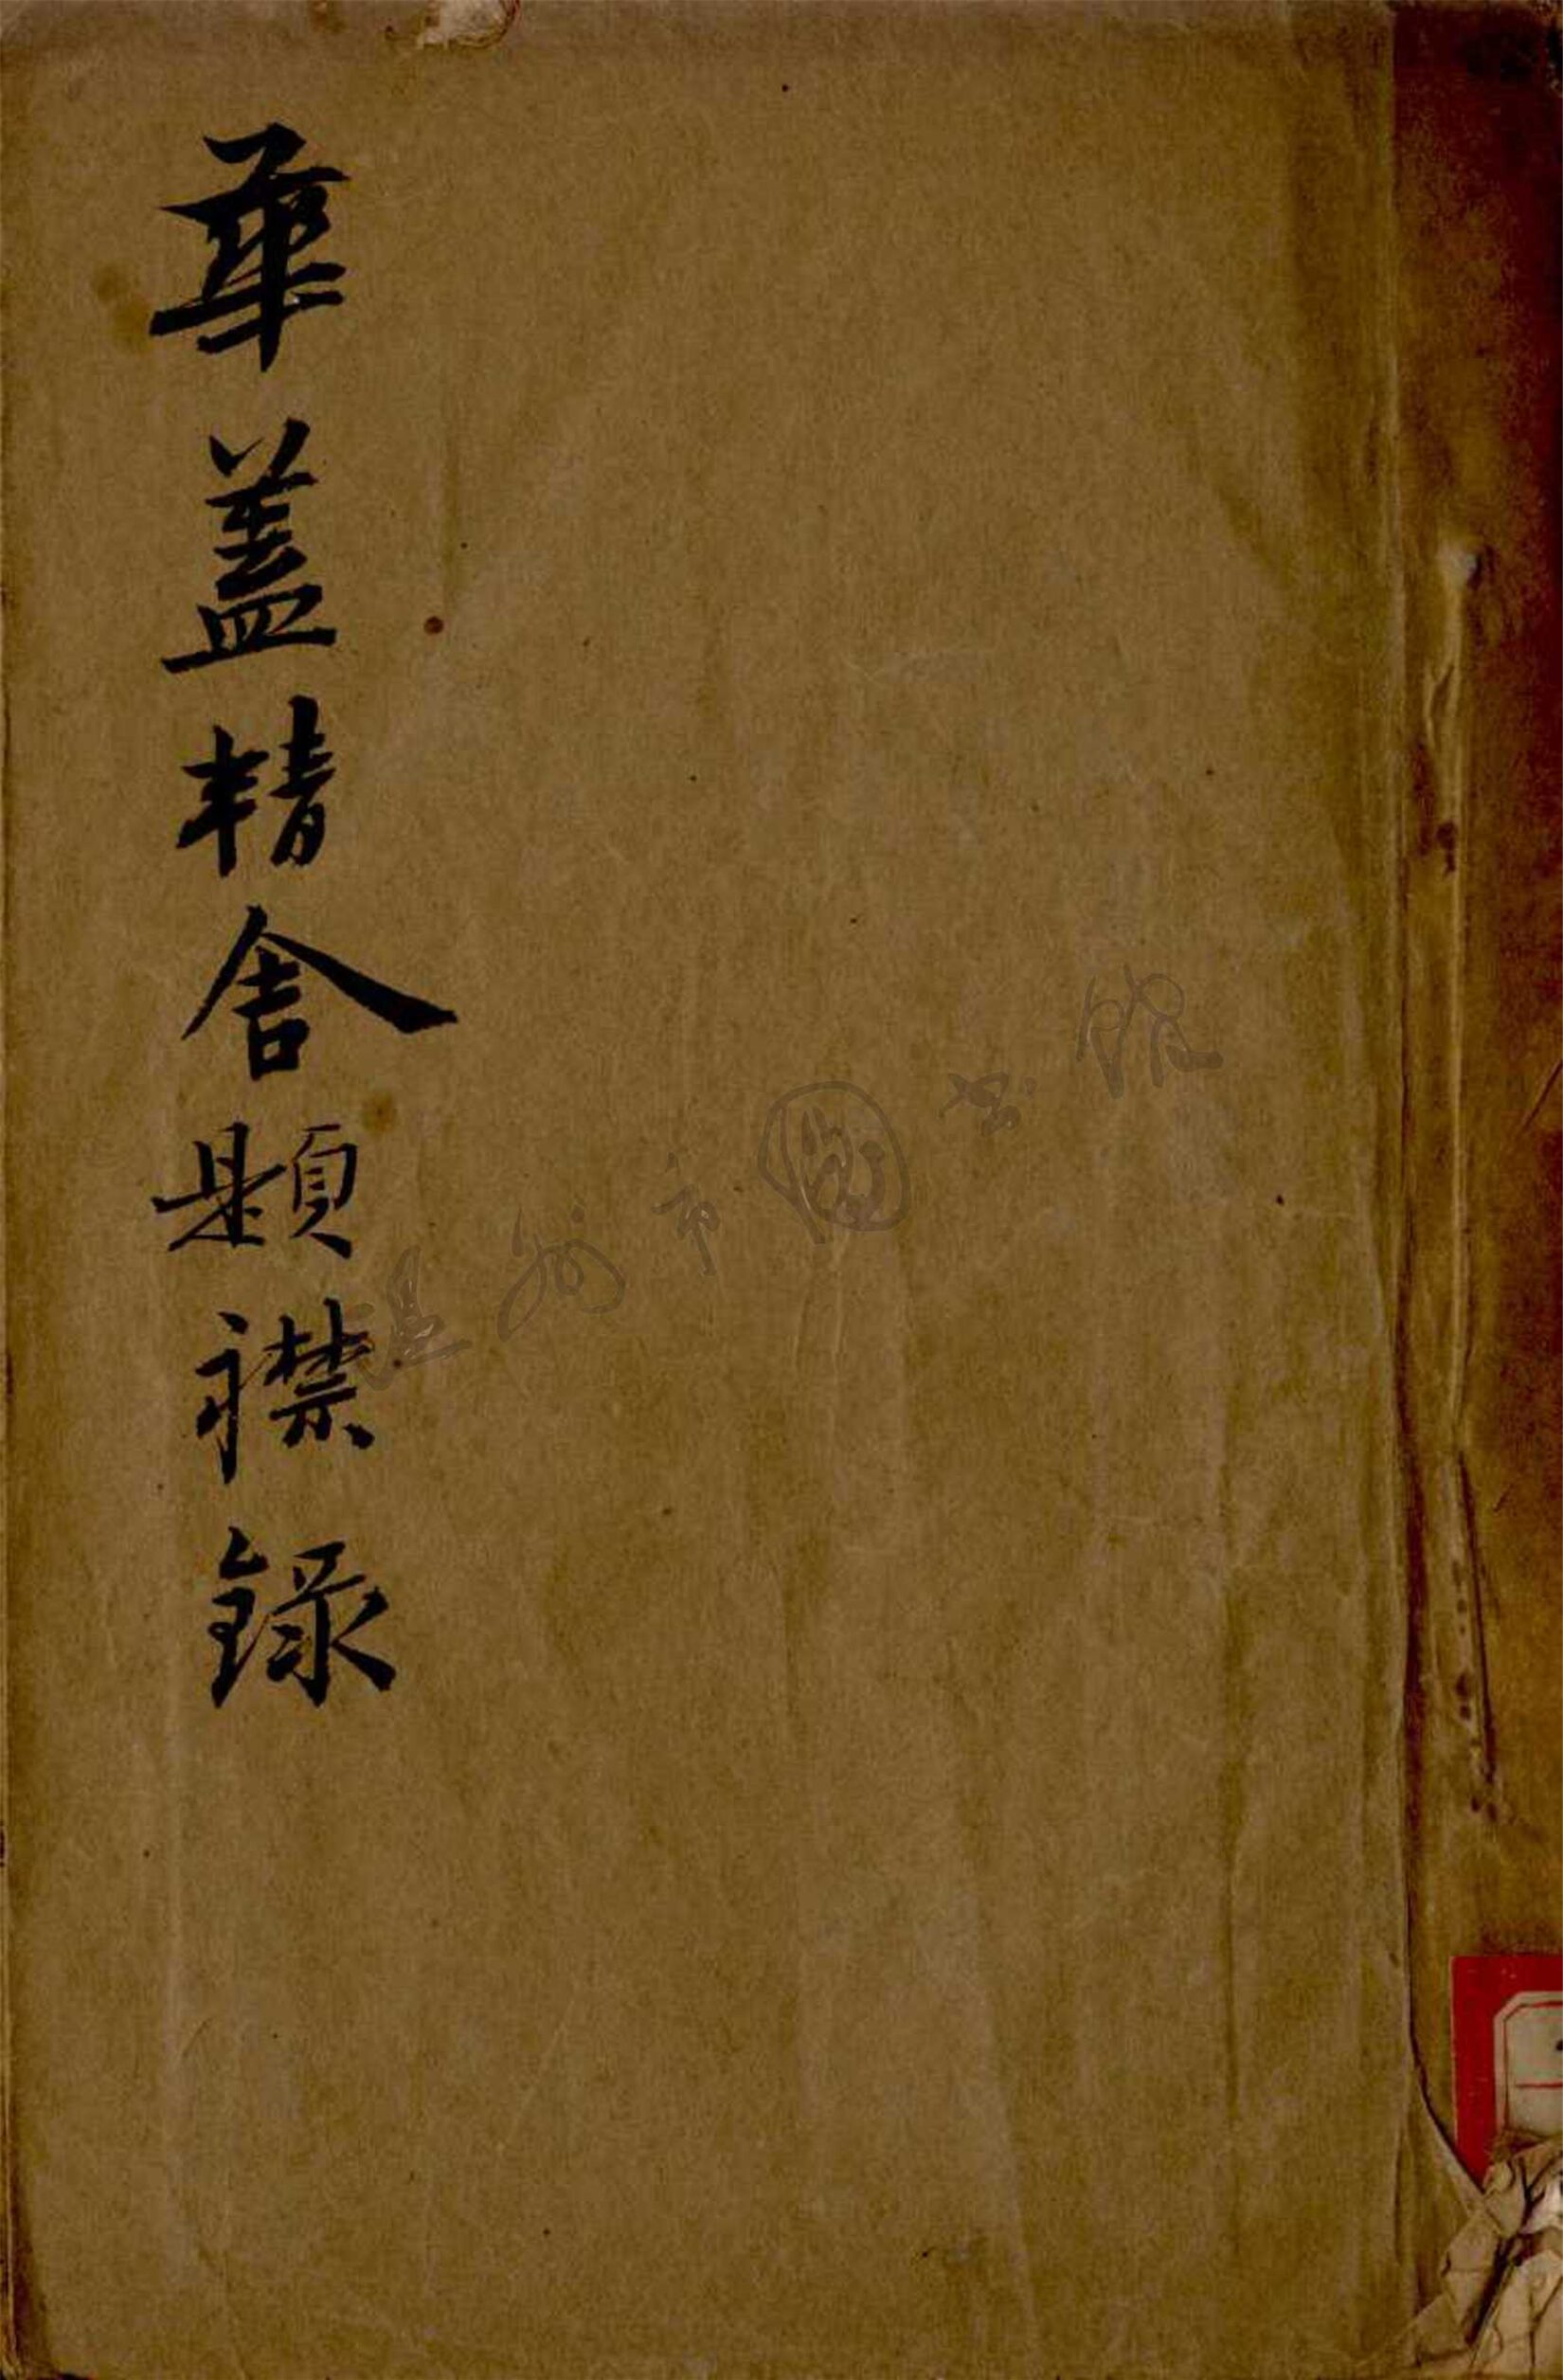 華蓋精舍題襟錄
温州市圖书館